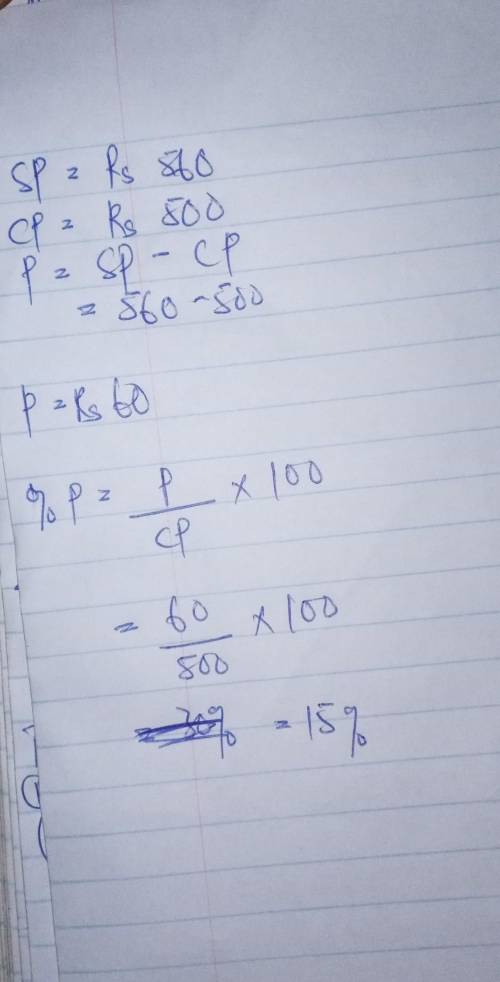 SP = Rs 560
CP = Rs 500
P = SP - CP
= 560 - 500
P = Rs 60
% P = P/CP × 100
= 60/500 × 100
= 15%